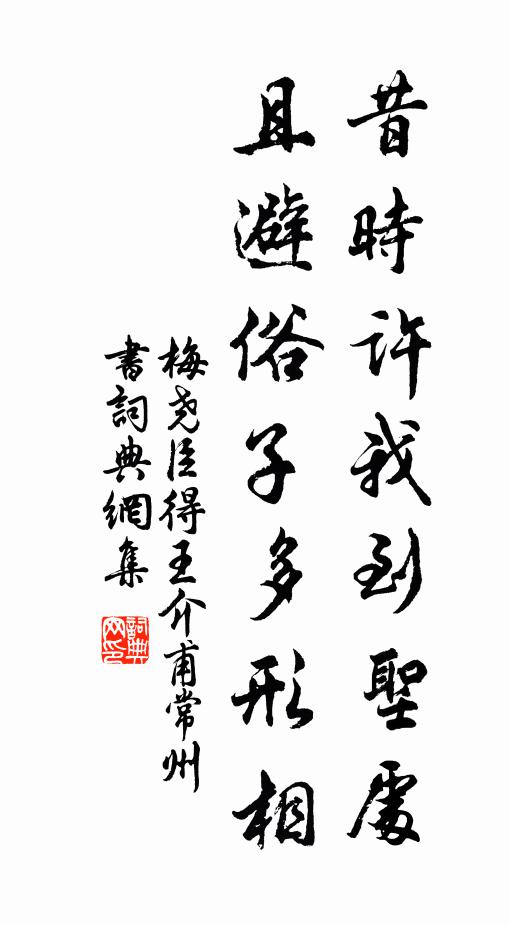 昔時許我到聖處
且避俗子多形相
梅尧臣得王介甫常州
書詞典網集
詞典
网印